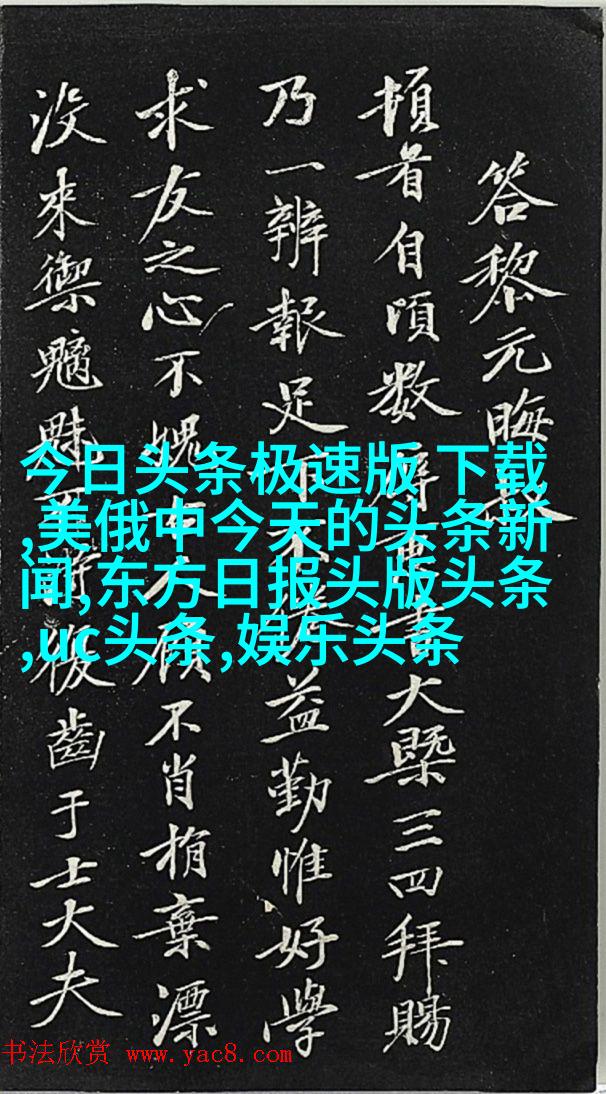 答黎元晦
頓首自頃数辱書大槩三四拜賜
乃一辨報足下不益勤惟好學
求友之心不媿古人顧不肖捐棄漂
没来禦魑魅復齒于士大夫
今日头条极速版 下载
,美俄中今天的头条新
闻,东方日报头版头条
,uc头条,娱乐头条
书法欣赏 www.yac8.com